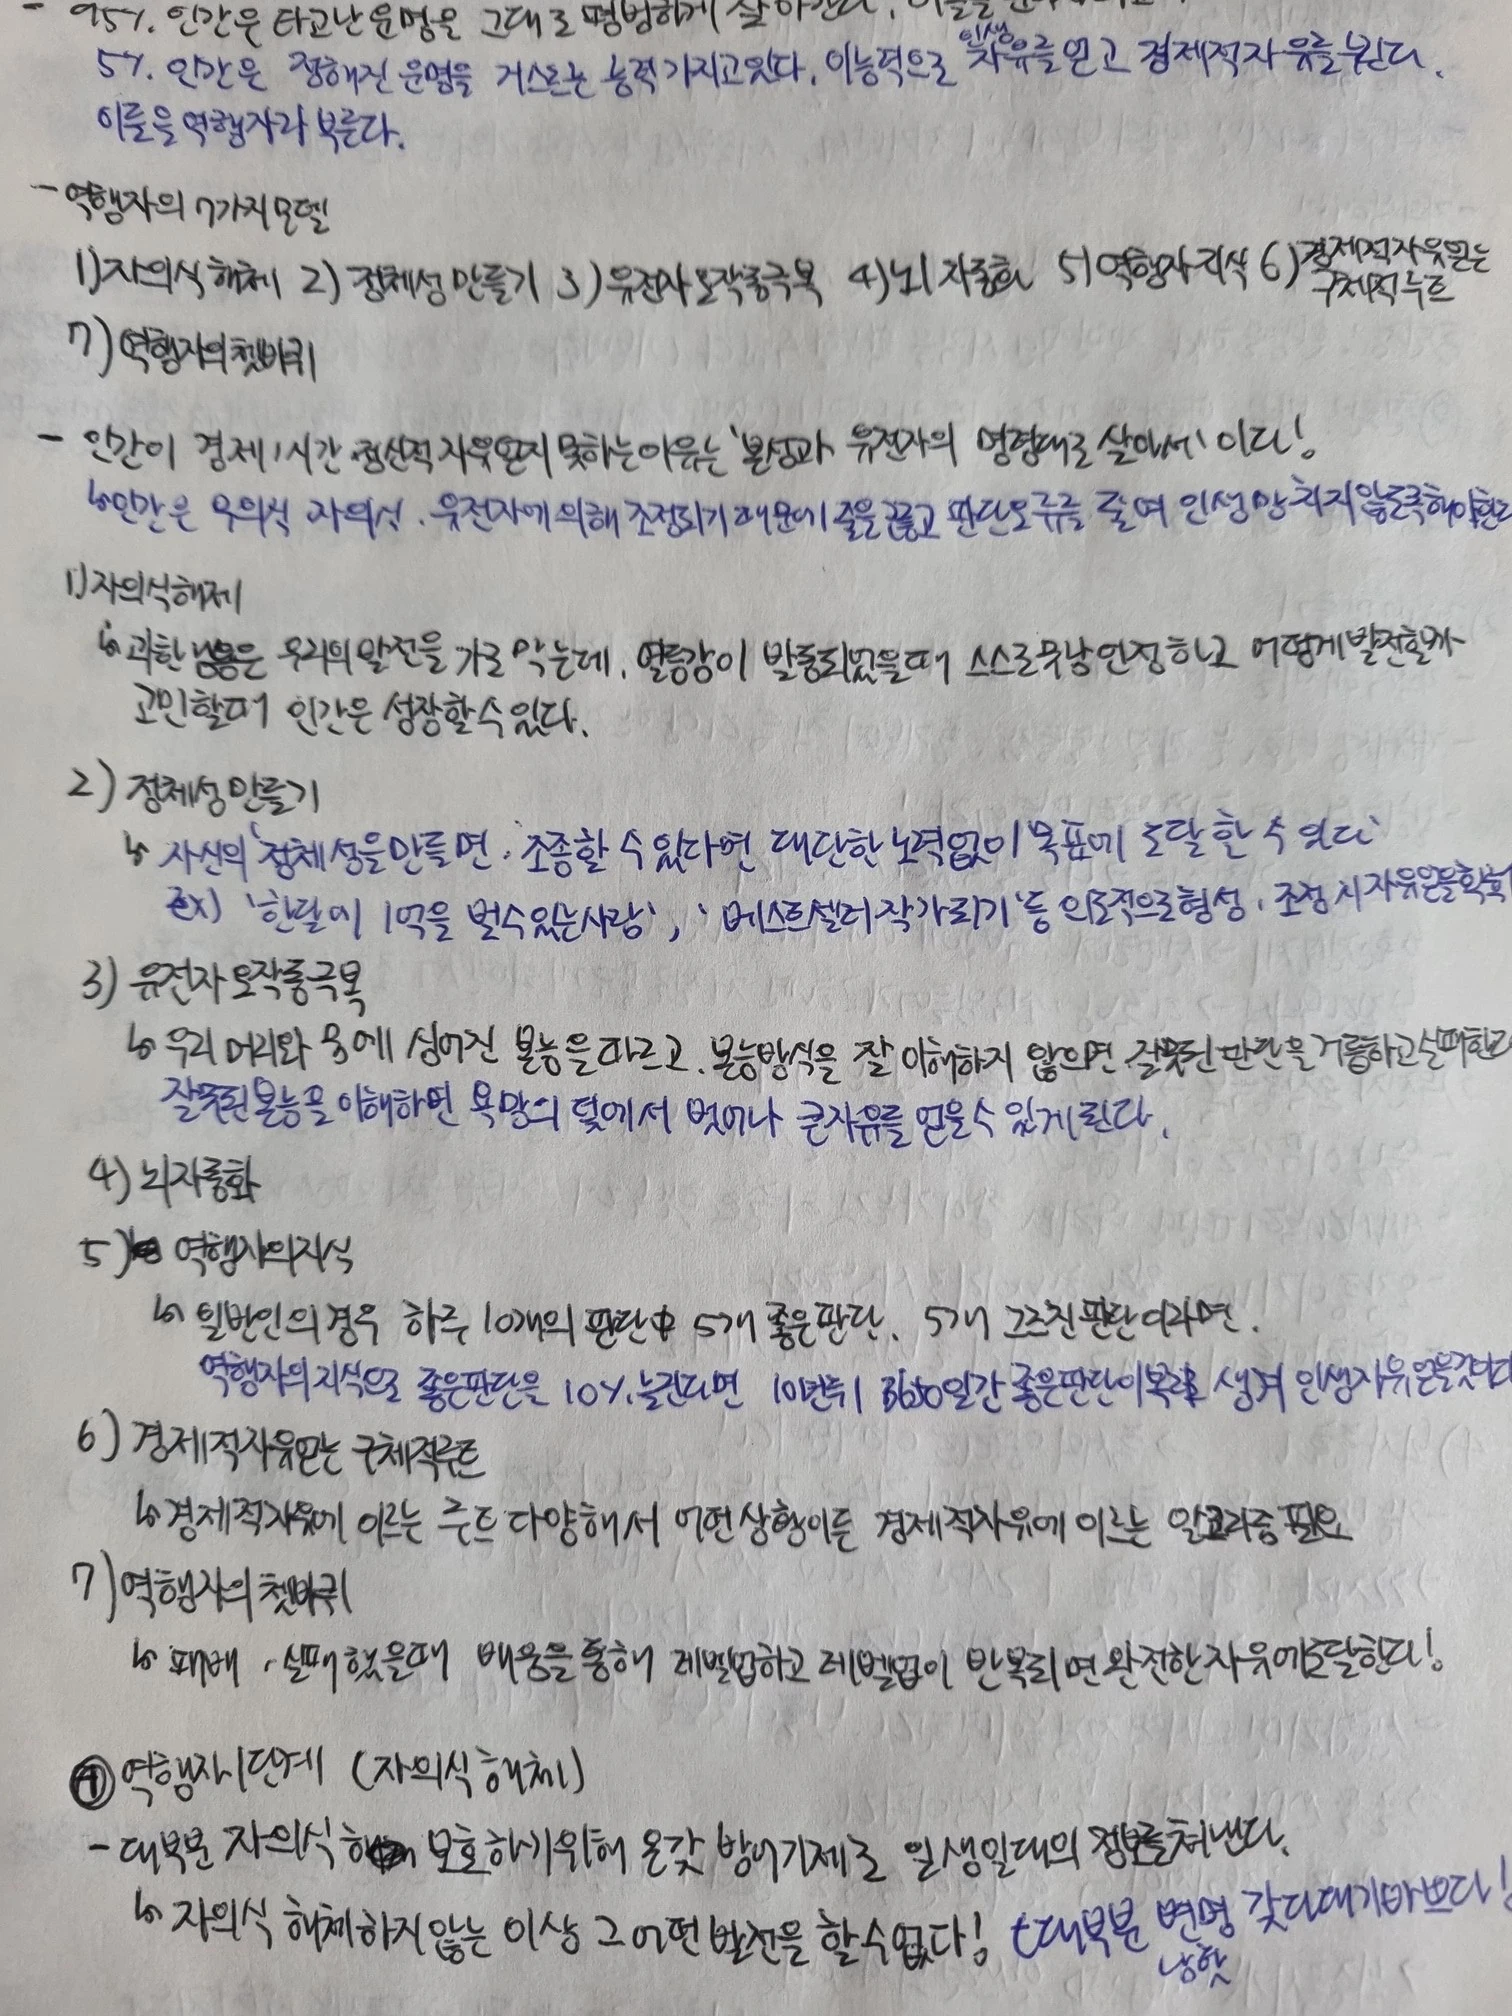 - 95%. 인간은 타고난 운명을 그대로 평범하게 살아간다.
5%. 인간은 정해진 운명을 거스르는 능력 가지고있다. 이능력으로 인생 자유를 얻고 경제적자유를 누린다.
이들을 역행자라 부른다.
- 역행자의 7가지 모델
1) 자의식 해체 2) 정체성 만들기 3) 유전자 오작동극복 4) 뇌 자동화 5) 역행자 지식 6) 경제적 자유얻는 구체적 루트
7) 역행자의 쳇바퀴
- 인간이 경제, 시간, 정신적 자유얻지 못하는이유는 '본성과 유전자의 명령대로 살아서' 이다!
↳ 인간은 무의식, 자의식, 유전자에 의해 조정되기 때문에 줄을 끊고 판단오류를 줄여 인생망치지않도록해야한다
1) 자의식해체
↳ 과한 은 우리의 발전을 가로 막는데, 열등감이 발동되었을때 스스로 인정하고 어떻게발전할까
고민할때 인간은 성장할수있다.
2) 정체성만들기
↳ 자신의 '정체성을 만들면, 조종할 수 있다면 대단한 노력없이 목표에 도달 할 수 있다'
ex) '한달에 1억을 벌수있는사람', '베스트셀러작가되기'등 의도적으로형성, 조정시 자유얻을확률
3) 유전자 오작동극복
↳ 우리 머리와 몸에 심어진 본능을 따르고, 본능방식을 잘 이해하지 않으면 잘못된 판단을 거듭하고실패한다
잘못된본능을 이해하면 욕망의 덫에서 벗어나 큰자유를 얻을수 있게된다.
4) 뇌자동화
5) 역행자의지식
↳ 일반인의 경우 하루 10개의 판단中 5개 좋은판단, 5개 판단이라면.
역행자의지식으로 좋은판단을 10% 늘린다면 10년뒤 3650일간 좋은판단이 생겨 인생자유얻을것이다
6) 경제적자유얻는 구체적루트
↳ 경제적자유에 이르는 루트 다양해서 어떤상황이든 경제적자유에 이르는 알고리즘 필요
7) 역행자의 쳇바퀴
↳ 패배, 실패했을때 배움을 통해 레벨업하고 레벨업이 반복되면 완전한자유에도달한다!
④ 역행자1단계 (자의식 해체)
- 대부분 자의식 보호하기위해 온갖 방어기제로 일생일대의 정보를쳐낸다.
↳ 자의식 해체하지않는 이상 그 어떤발전을 할수없다! (대부분 변명 갖다대기바쁘다!